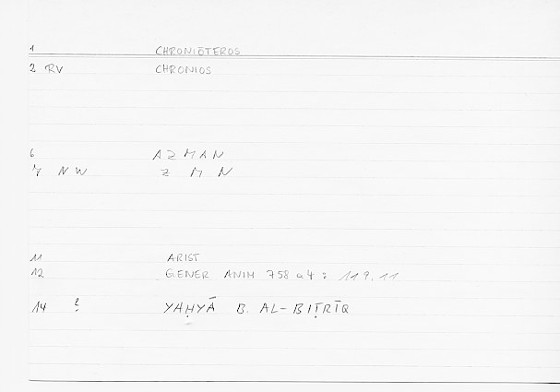 1 CHRONIŌTEROS
2 RV CHRONIOS
6 AZMAN
7 NW Z M N
11 ARIST
12 GENER ANIM 758 a 4 : 119.11
14 ? YAḤYĀ B. AL-BIṬRĪQ